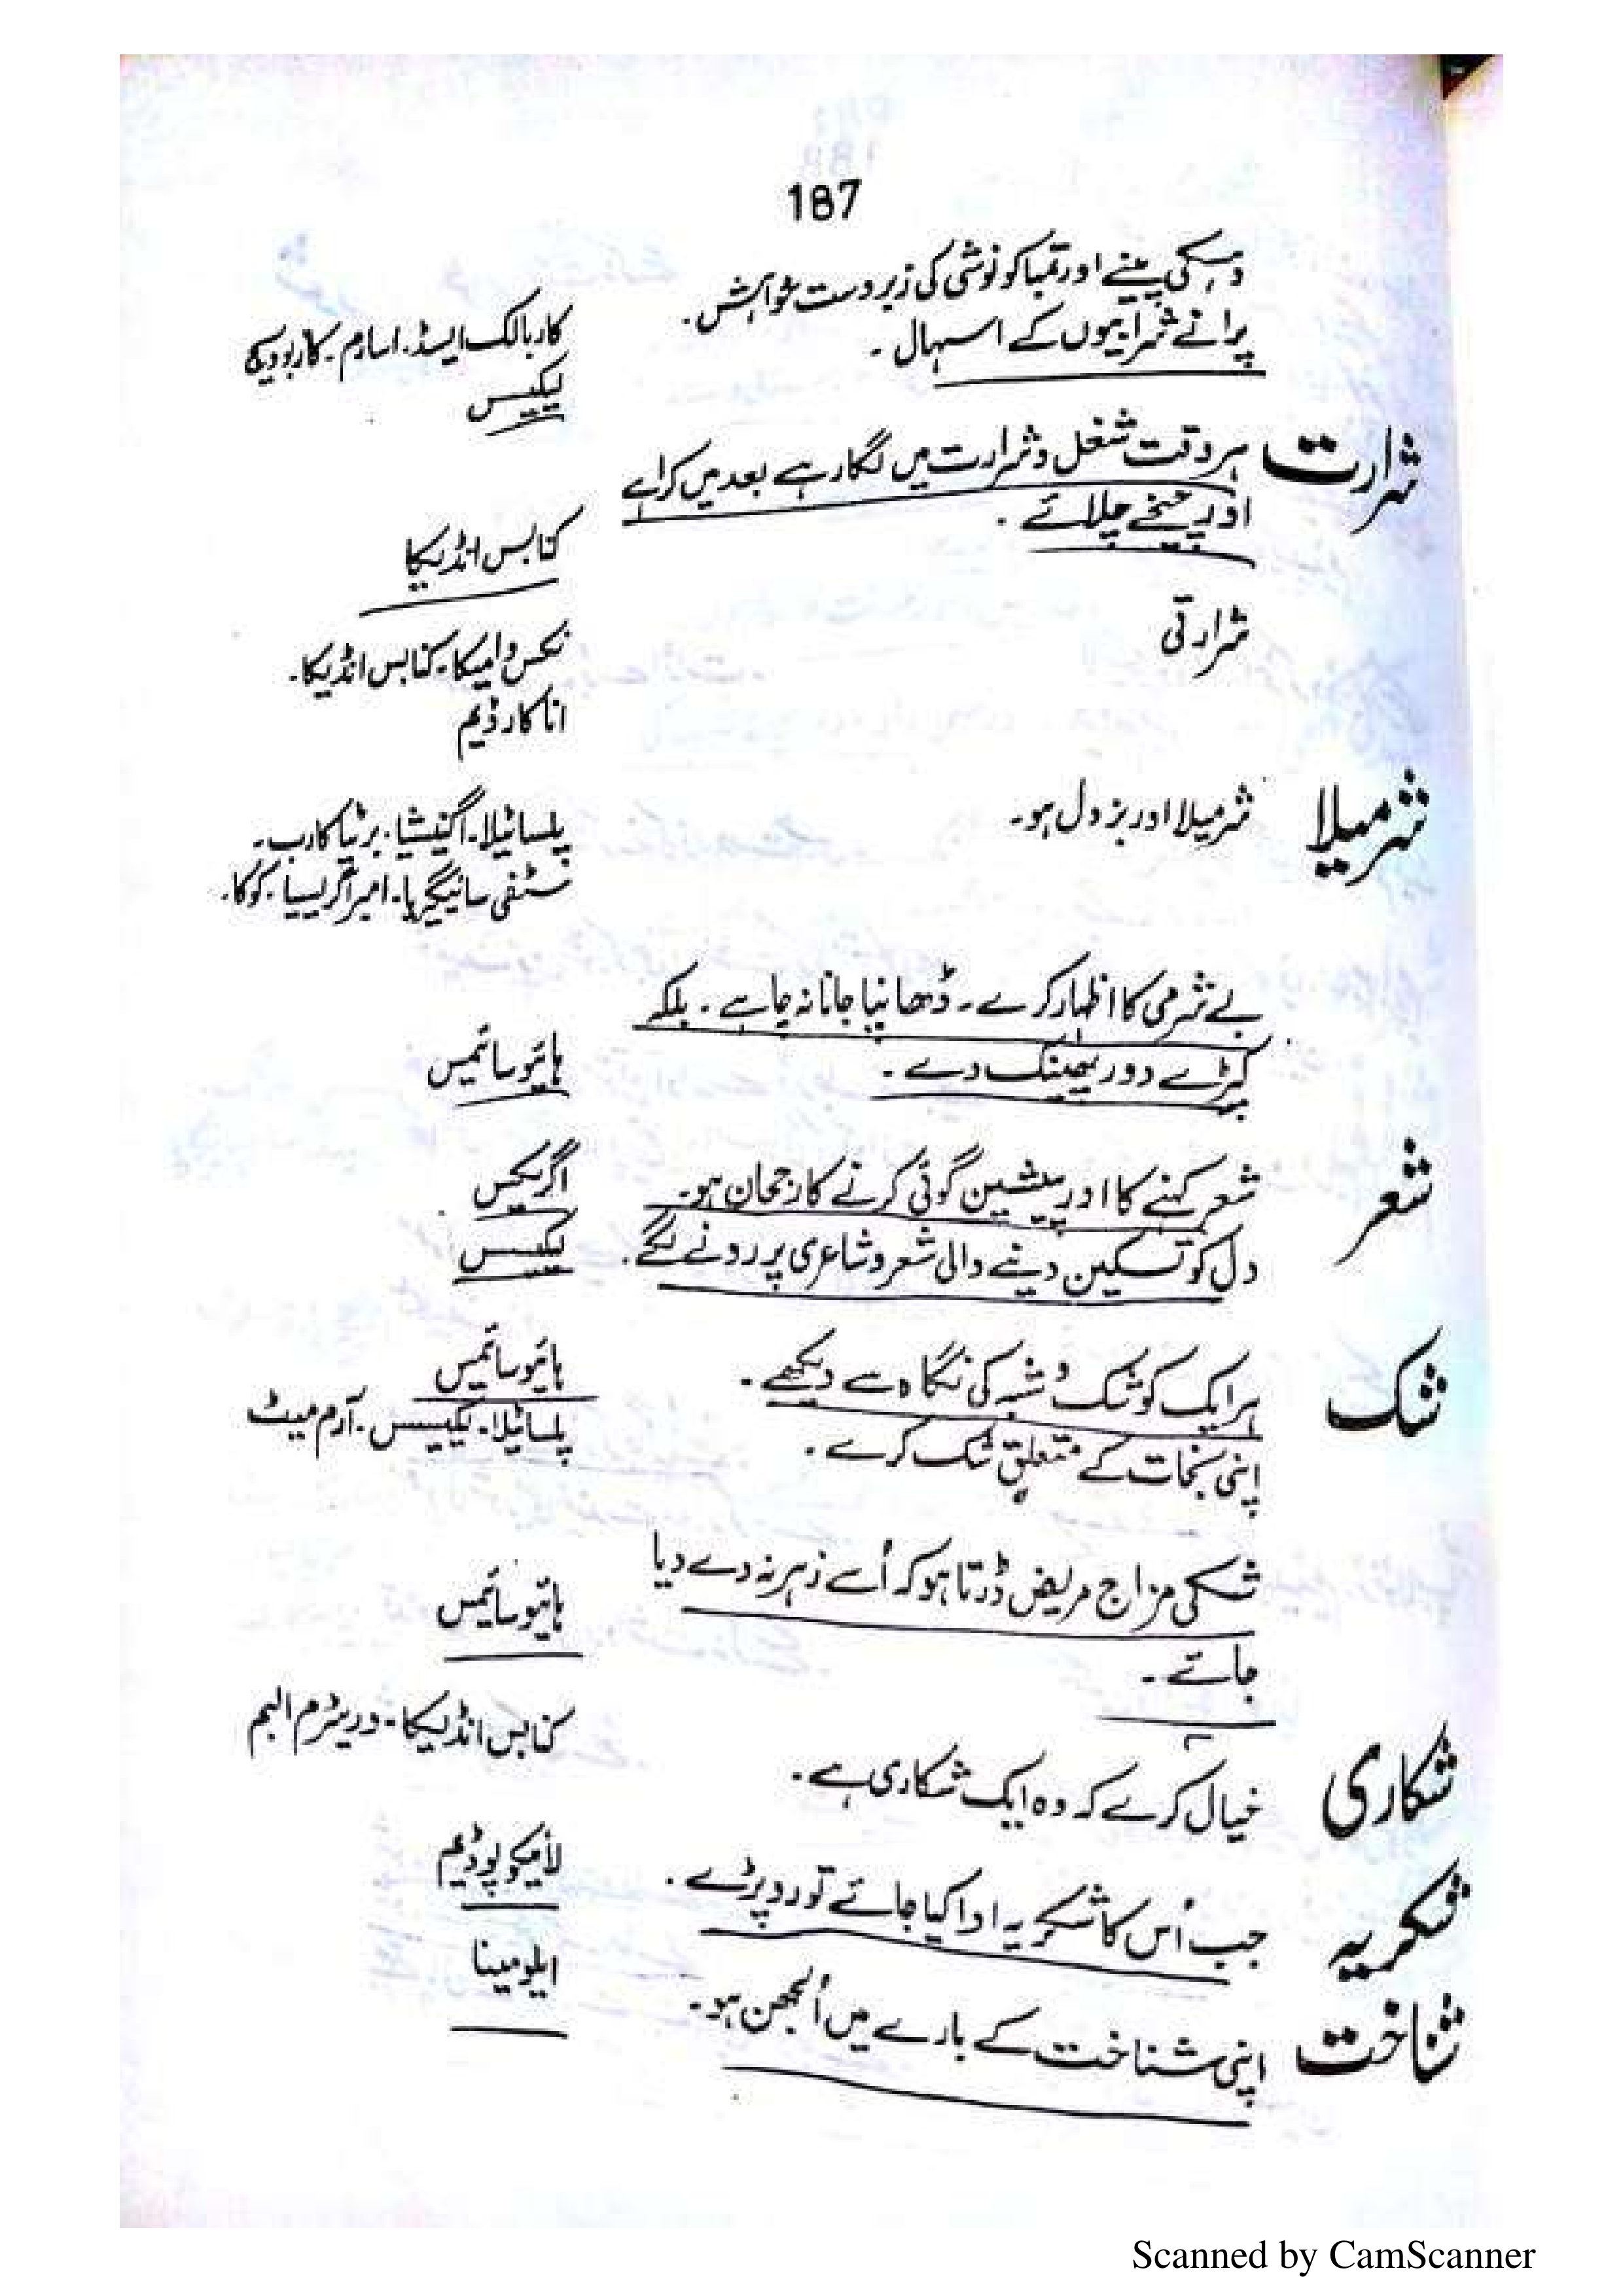 187
وہسکی پینے اور تمباکو نوشی کی زبردست خواہش.
پرانے شرابیوں کے اسہال ۔
کاربالک ایسڈ. اسارم ۔ کاربوویج
لیکیسس
شرارت
ہر وقت شغل و شرارت میں لگا رہے بعد میں کراہے
اور چیخے چلائے .
کنابس انڈیکا
شرارتی
نکس وامیکا. کنابس انڈیکا.
اناکارڈیم
شرمیلا
شرمیلا اور بزدل ہو.
پلساٹیلا. اگنیشیا. برٹیا کارب.
سٹفی سائیگریا. امبراگریسیا. کوکا.
بے شرمی کا اظہار کرے ۔ ڈھانپا جانا نہ چاہے . بلکہ
کپڑے دور پھینک دے ۔
ہائیوسائمس
شعر
شعر کہنے کا اور پیشین گوئی کرنے کا رجحان ہو.
اگریکس
دل کو تسکین دینے والی شعر و شاعری پر رونے لگے.
لیکیسس
شک
ہر ایک کو شک و شبہ کی نگاہ سے دیکھے .
ہائیوسائمس
اپنی نجات کے متعلق شک کرے .
پلساٹیلا. لیکیسس. آرم میٹ
شکی مزاج مریض ڈرتا ہو کہ اُسے زہر نہ دے دیا
جائے ۔
ہائیوسائمس
شکاری
خیال کرے کہ وہ ایک شکاری ہے .
کنابس انڈیکا. وریٹرم البم
شکریہ
جب اُس کا شکریہ ادا کیا جائے تو رو پڑے .
لائیکوپوڈیم
شناخت
اپنی شناخت کے بارے میں اُلجھن ہو.
ایلومینا
Scanned by CamScanner